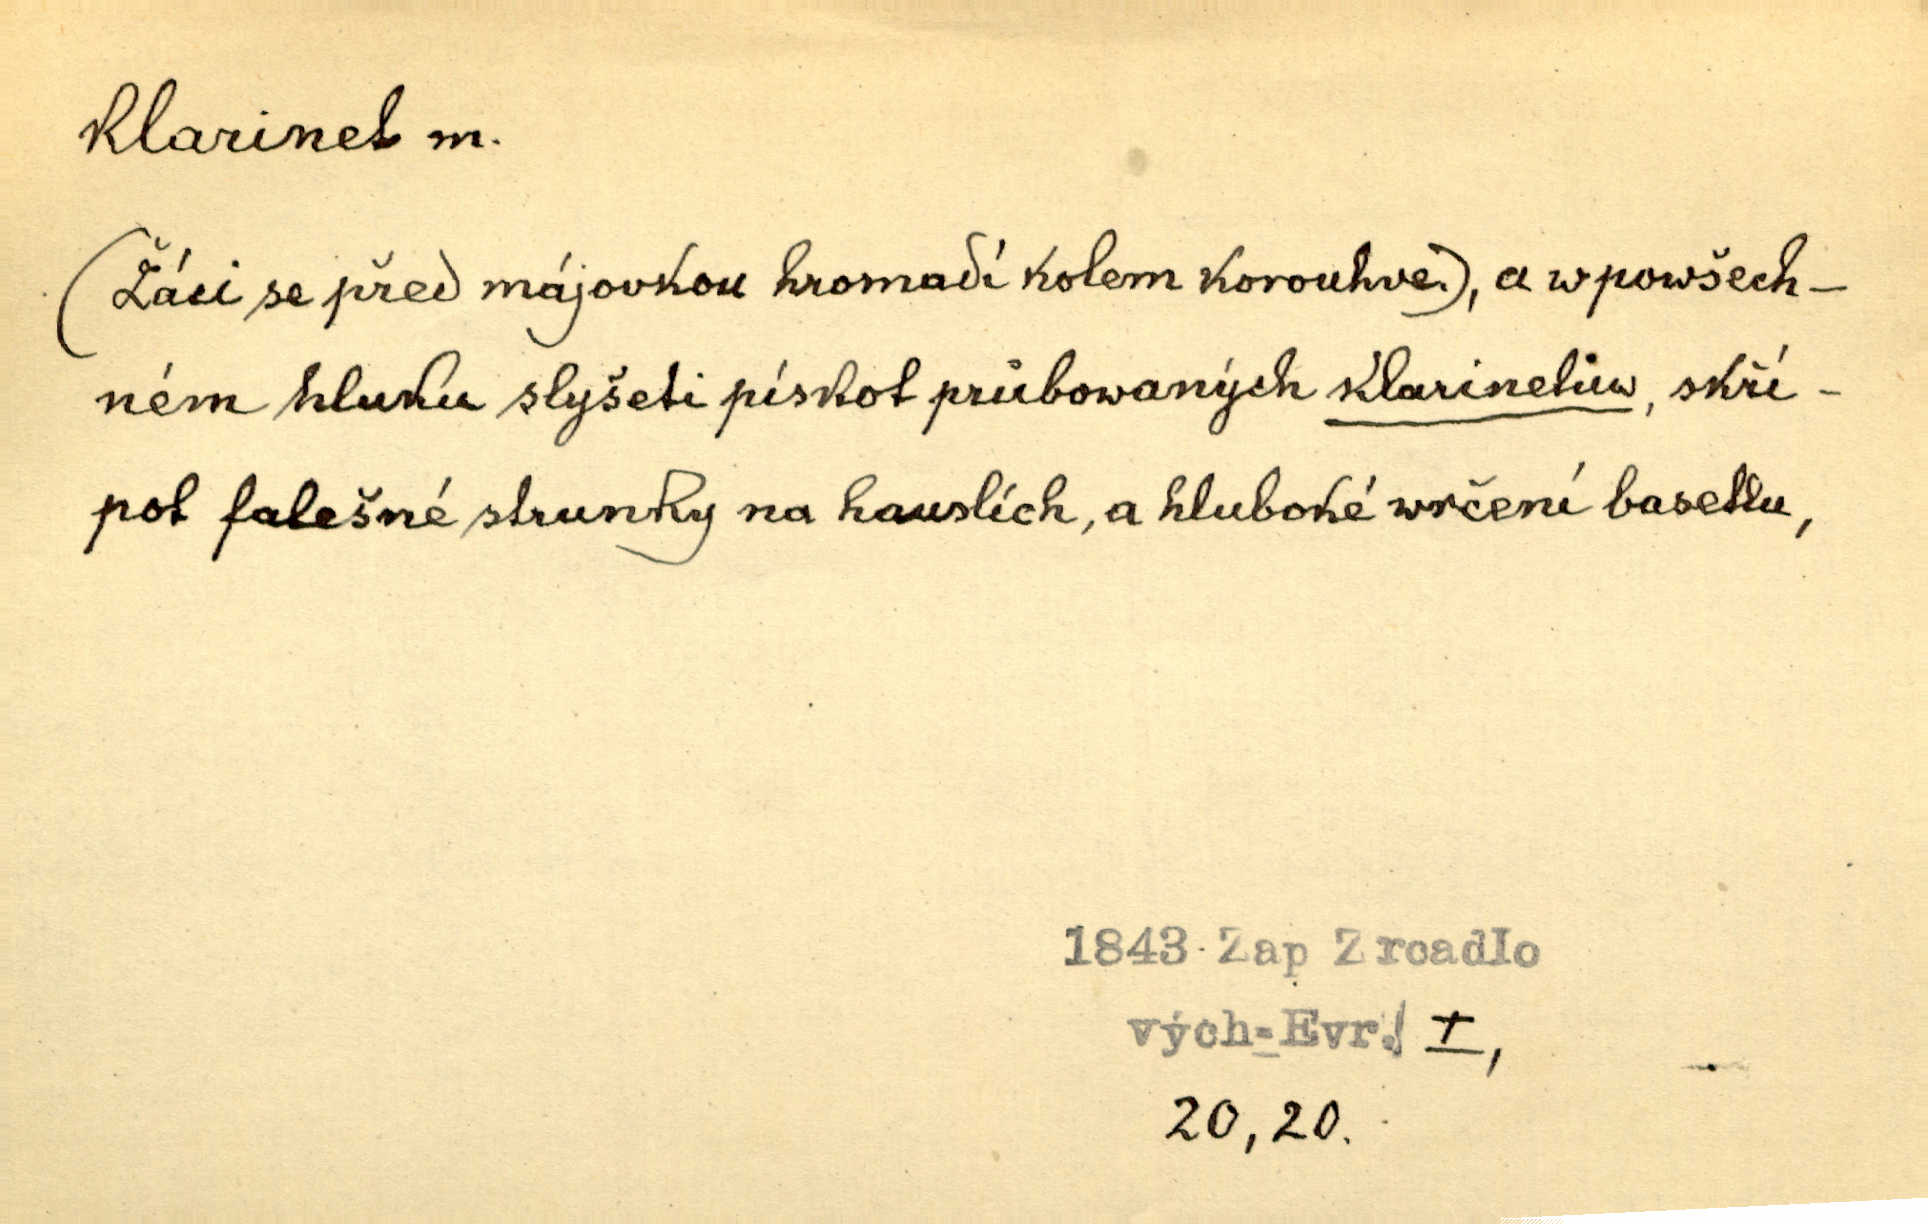 klarinet m.
(Žáci se před májovkou hromadí kolem korouhve.), a w powšech-
ném hluku slyšeti pískot průbowaných klarinetůw, skří-
pot falešné strunky na hauslích, a hluboké wrčení basetlu,
1843 Zap Zrcadlo
vých=Evr. I,
20, 20.